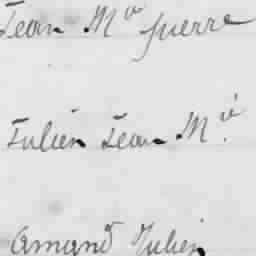 Jean Mie Guerre
Julien Jean Mie
Amand Julien